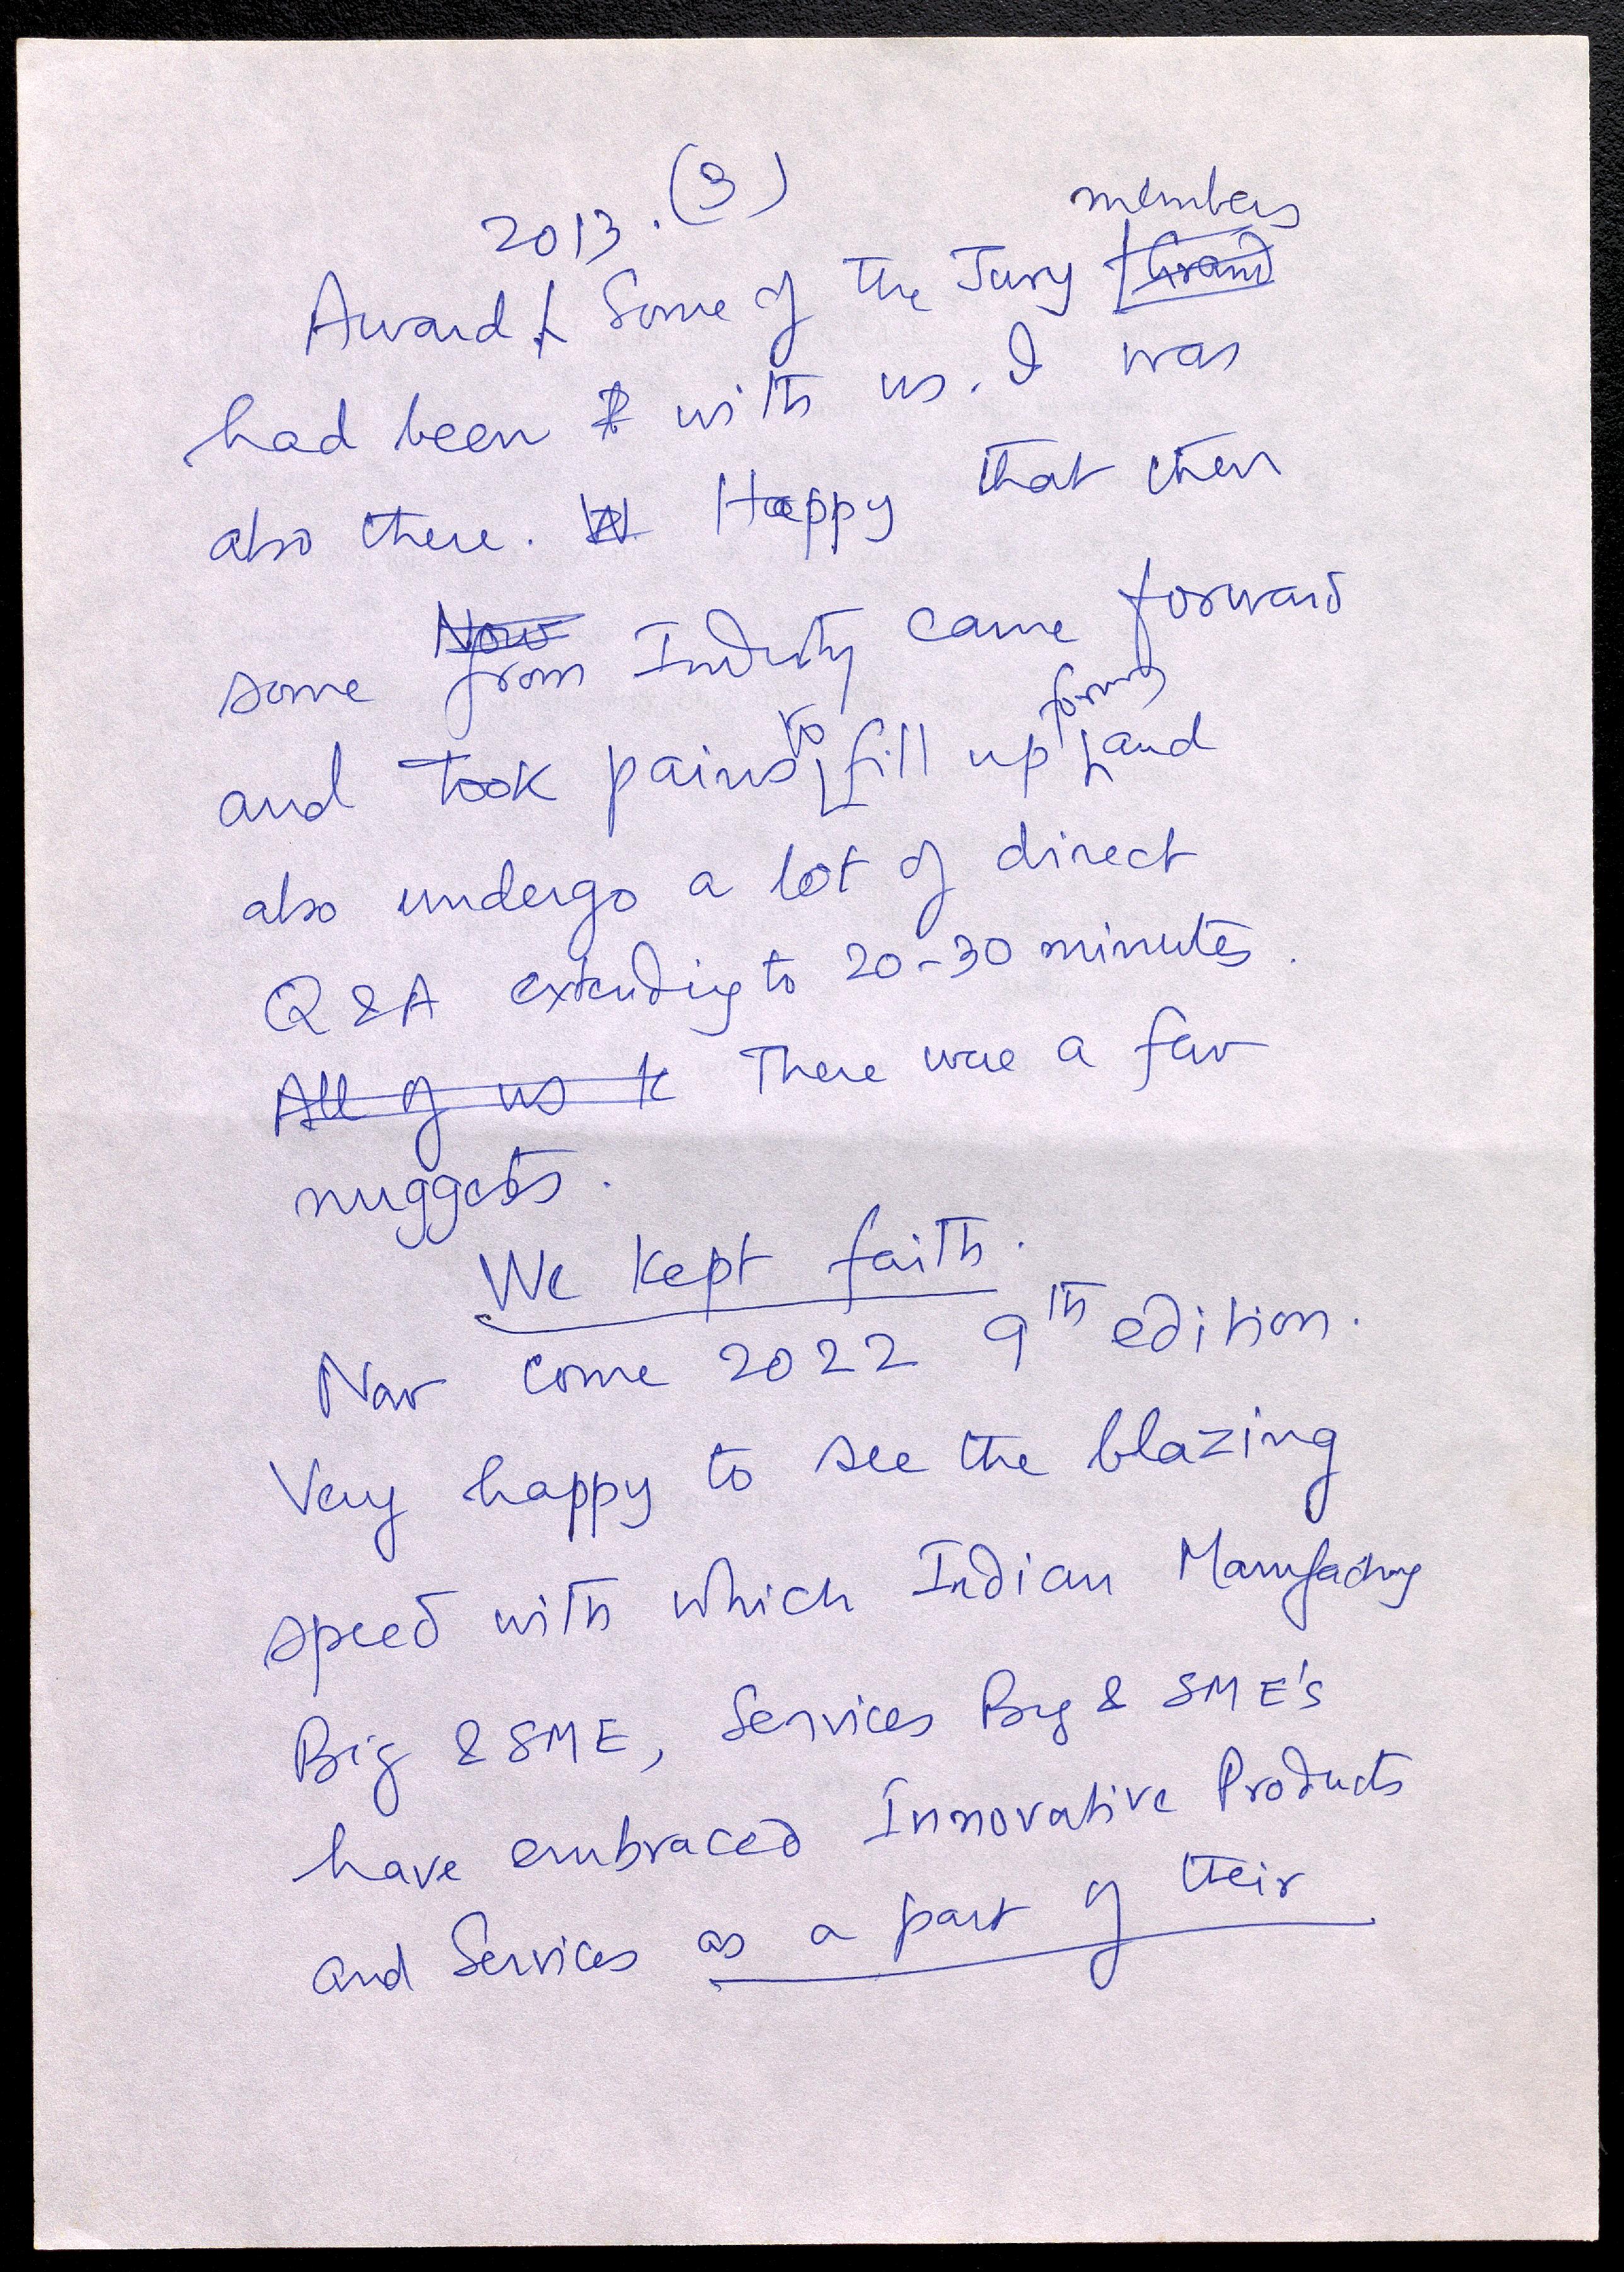 (3)
2013.
members
Award Some of the Jury
had been with us. I was
also there. Happy that then
some from Industy came forward
to forms
and took pains fill up and
also undergo a lot of direct
Q & A extending to 20-30 minutes.
All of us There were a few
nuggets.
We kept faith.
Now come 2022 9th edition.
Very happy to see the blazing
speed with which Indian Manufacturing
Big & SME, Services Big & SME's
have embraced Innovative Products
and Services as a part of their